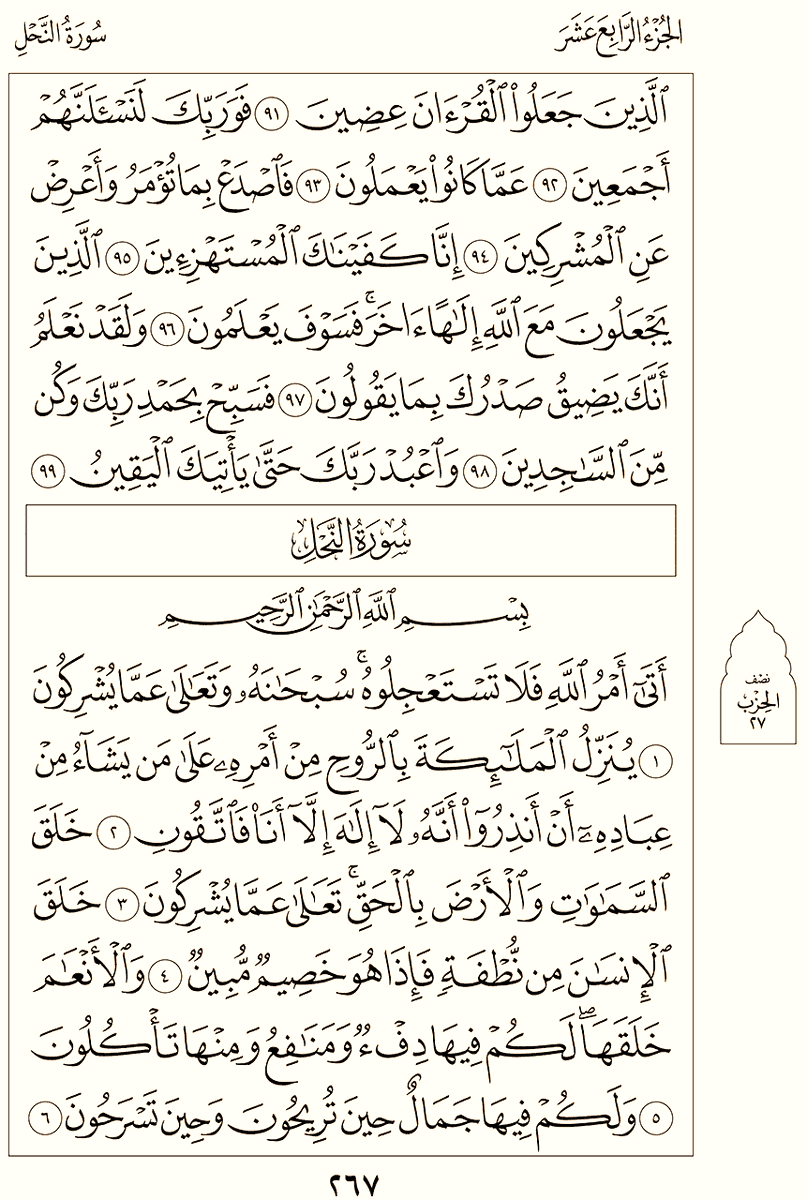 الجُزْءُ الرَّابِعَ عَشَرَ
سُورَةُ النَّحْلِ
ٱلَّذِينَ جَعَلُوا۟ ٱلْقُرْءَانَ عِضِينَ ٩١ فَوَرَبِّكَ لَنَسْـَٔلَنَّهُمْ
أَجْمَعِينَ ٩٢ عَمَّا كَانُوا۟ يَعْمَلُونَ ٩٣ فَٱصْدَعْ بِمَا تُؤْمَرُ وَأَعْرِضْ
عَنِ ٱلْمُشْرِكِينَ ٩٤ إِنَّا كَفَيْنَٰكَ ٱلْمُسْتَهْزِءِينَ ٩٥ ٱلَّذِينَ
يَجْعَلُونَ مَعَ ٱللَّهِ إِلَٰهًا ءَاخَرَ ۚ فَسَوْفَ يَعْلَمُونَ ٩٦ وَلَقَدْ نَعْلَمُ
أَنَّكَ يَضِيقُ صَدْرُكَ بِمَا يَقُولُونَ ٩٧ فَسَبِّحْ بِحَمْدِ رَبِّكَ وَكُن
مِّنَ ٱلسَّٰجِدِينَ ٩٨ وَٱعْبُدْ رَبَّكَ حَتَّىٰ يَأْتِيَكَ ٱلْيَقِينُ ٩٩
سُورَةُ النَّحْلِ
بِسْمِ ٱللَّهِ ٱلرَّحْمَٰنِ ٱلرَّحِيمِ
أَتَىٰٓ أَمْرُ ٱللَّهِ فَلَا تَسْتَعْجِلُوهُ ۚ سُبْحَٰنَهُۥ وَتَعَٰلَىٰ عَمَّا يُشْرِكُونَ
١ يُنَزِّلُ ٱلْمَلَٰٓئِكَةَ بِٱلرُّوحِ مِنْ أَمْرِهِۦ عَلَىٰ مَن يَشَآءُ مِنْ
عِبَادِهِۦٓ أَنْ أَنذِرُوٓا۟ أَنَّهُۥ لَآ إِلَٰهَ إِلَّآ أَنَا۠ فَٱتَّقُونِ ٢ خَلَقَ
ٱلسَّمَٰوَٰتِ وَٱلْأَرْضَ بِٱلْحَقِّ ۚ تَعَٰلَىٰ عَمَّا يُشْرِكُونَ ٣ خَلَقَ
ٱلْإِنسَٰنَ مِن نُّطْفَةٍ فَإِذَا هُوَ خَصِيمٌ مُّبِينٌ ٤ وَٱلْأَنْعَٰمَ
خَلَقَهَا ۗ لَكُمْ فِيهَا دِفْءٌ وَمَنَٰفِعُ وَمِنْهَا تَأْكُلُونَ
٥ وَلَكُمْ فِيهَا جَمَالٌ حِينَ تُرِيحُونَ وَحِينَ تَسْرَحُونَ ٦
نصف
الحزب
٢٧
٢٦٧